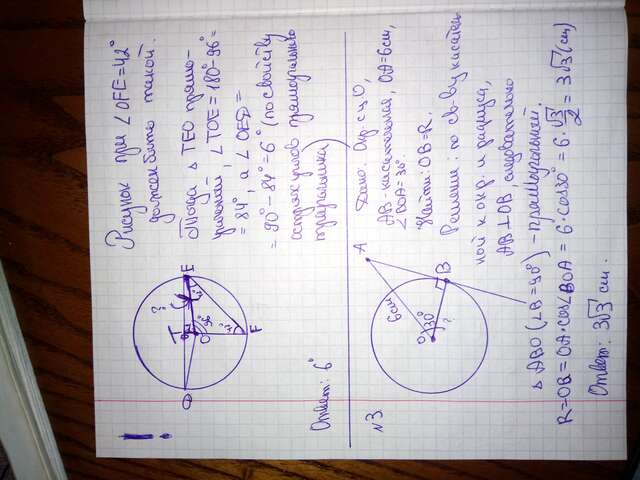 Рисунок при ∠OFE=42°
должен быть такой.
Тогда △TEO прямо-
угольный, ∠TOE = 180°-96°=
= 84°, а ∠OED =
= 90°-84°=6° (по свойству
острых углов прямоугольного
треугольника)
E
?
T
O
96°
F
D
Ответ: 6°
!
N3
A
6 см
B
O
30°
?
Дано: Окр с ц O,
AB - касательная, OA=6см,
∠BOA=30°.
Найти: OB=R.
Решение: по св-ву касатель
ной к окр. и радиуса,
AB⊥OB, следовательно
△ABO (∠B=90°) - прямоугольный.
R=OB=OA·cos∠BOA = 6·cos30° = 6·√3/2 = 3√3 (см)
Ответ: 3√3 см.